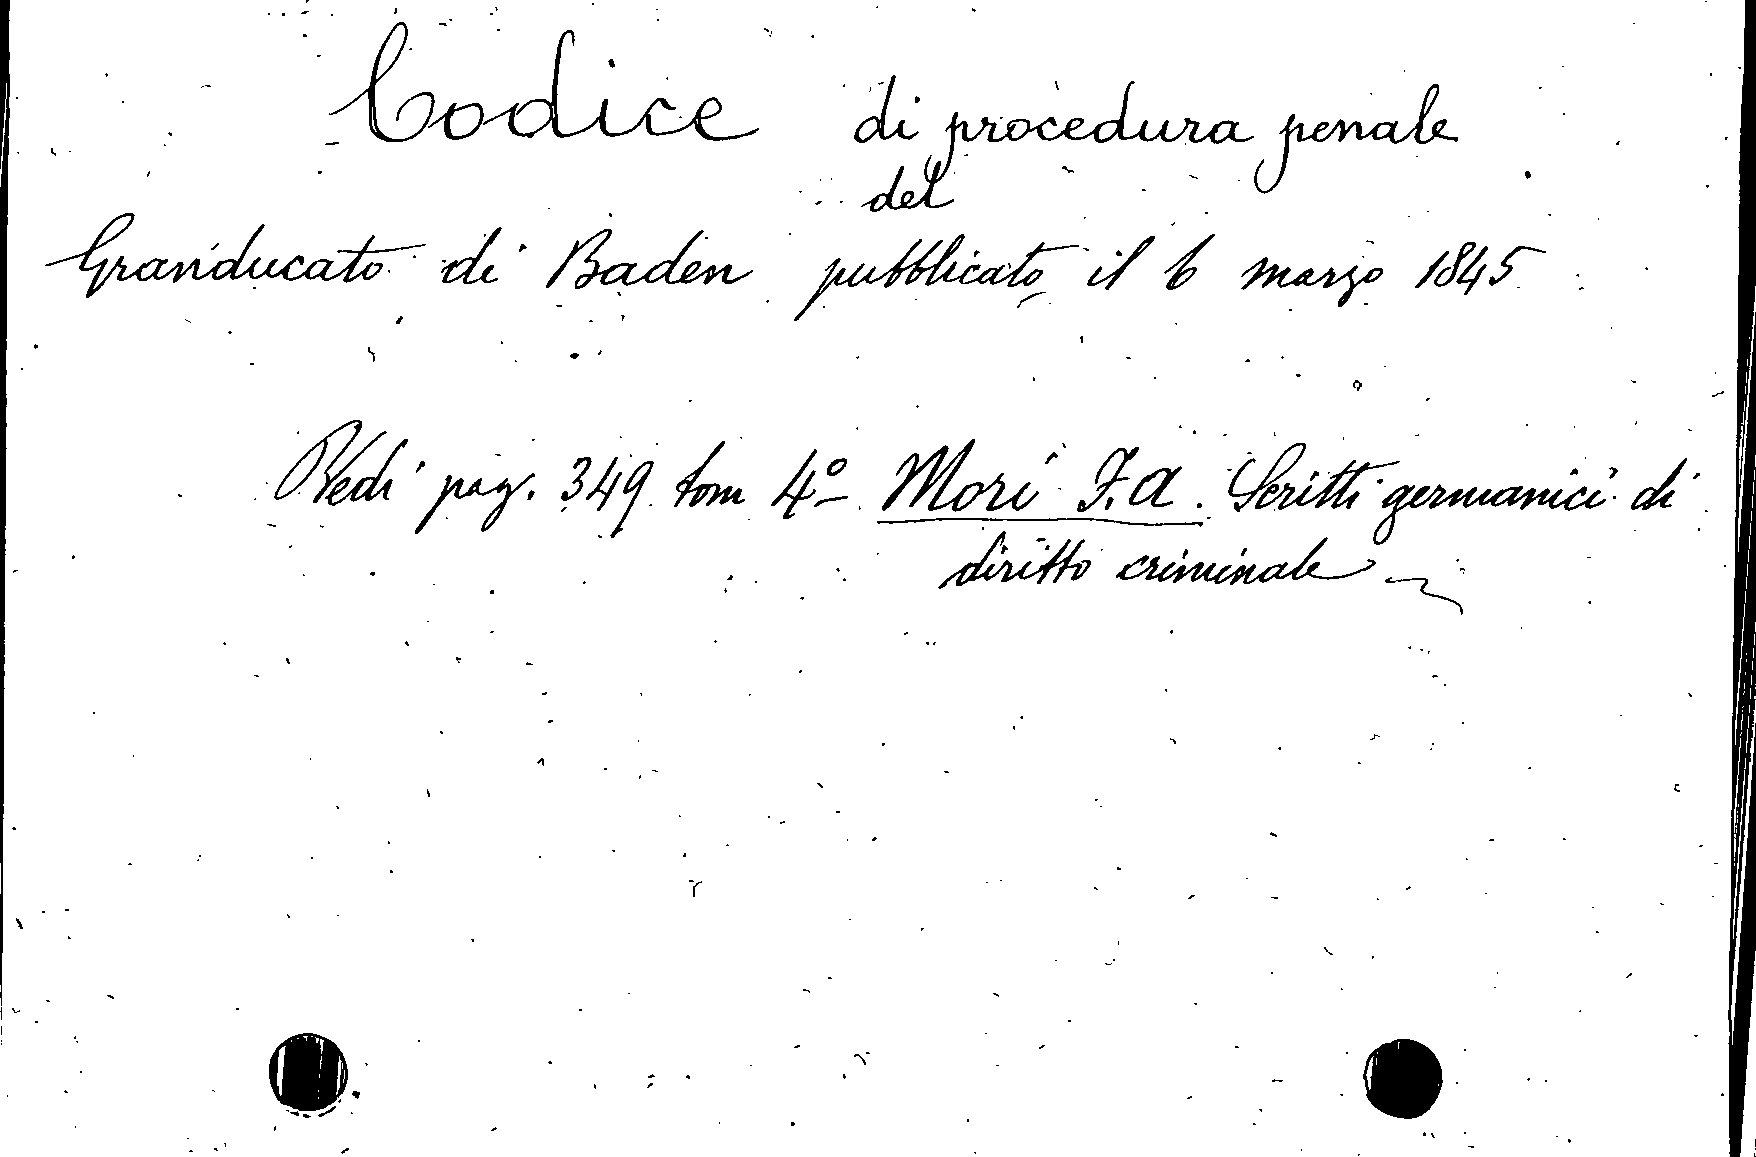 Codice di procedura penale
del
Granducato di Baden pubblicato il 6 marzo 1845
Vedi pag. 349 tom 4º Mori F. A. Scritti germanici di
diritto criminale